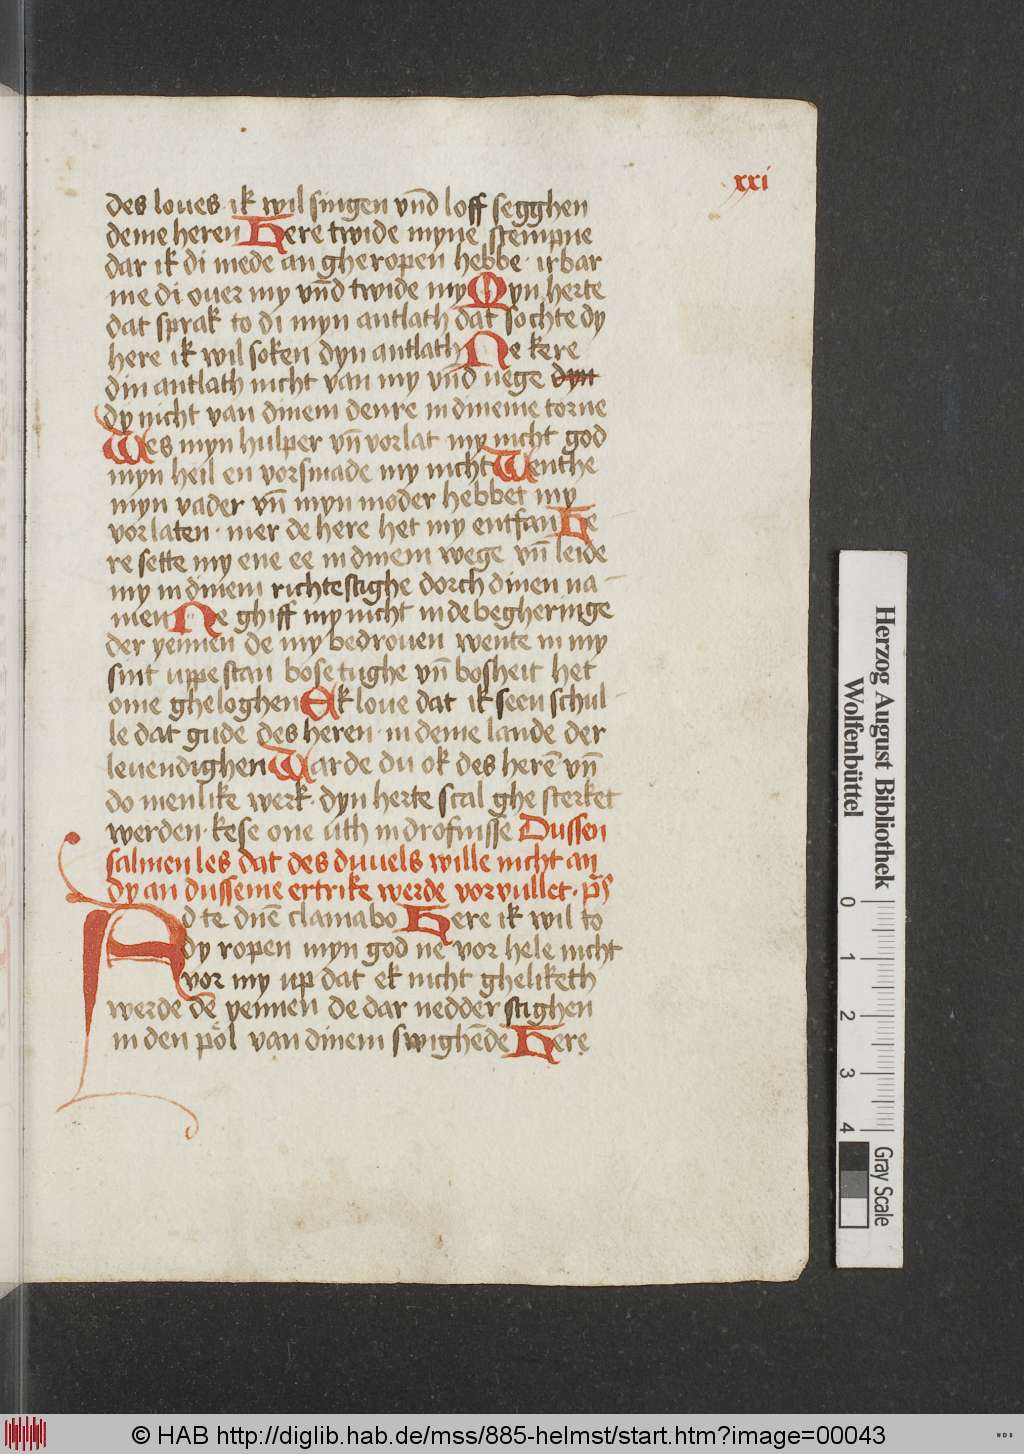 xxi
des loues ik wil singen vnd loff segghen
deme heren Here twide myne stempne
dar ik di mede an gheropen hebbe · irbar
me di ouer my vnd twide my Myn herte
dat sprak to di myn antlath dat sochte dy
here ik wil soken dyn antlath Ne kere
din antlath nicht van my vnd nege dyn
dy nicht van dinem denre in dineme torne
Wes myn hulper vn̄ vorlat my nicht god
myn heil en vorsmade my nicht Wenthe
myn vader vn̄ myn moder hebbet my
vorlaten · mer de here het my entfan He
re sette my ene ee in dinem wege vn̄ leide
my in dinem richtestighe dorch dinen na
men Ne ghiff my nicht in de begheringe
der yennen de my bedrouen wente in my
sint uppestan bose tughe vn̄ bosheit het
ome gheloghen Ek loue dat ik seen schul
le dat gude des heren · in deme lande der
leuendighen Warde du ok des herē vn̄
do menlike werk · dyn herte scal ghesterket
werden · kese one uth in drofnisse Dussen
salmen les dat des duuels wille nicht an
dy an dusseme ertrike werde vorvullet · ps
Ad te dnē clamabo Here ik wil to
dy ropen myn god ne vor hele nicht
vor my up dat ek nicht gheliketh
werde dē yennen de dar nedder stighen
in den pol van dinem swighēde Here
Herzog August Bibliothek
Wolfenbüttel
0 1 2 3 4
Gray Scale
© HAB http://diglib.hab.de/mss/885-helmst/start.htm?image=00043
WDB